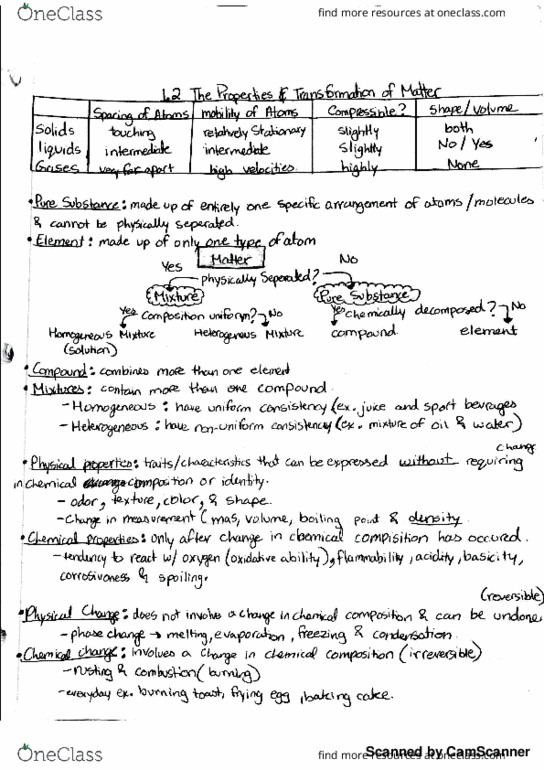 OneClass find more resources at oneclass.com
1.2 The Properties & Transformation of Matter
Spacing of Atoms mobility of Atoms Compressible? Shape/Volume
Solids touching relatively Stationary slightly both
liquids intermediate intermediate Slightly No / Yes
Gases very far apart high velocities highly None
• Pure Substance: made up of entirely one specific arrangement of atoms/molecules
& cannot be physically seperated.
• Element: made up of only one type of atom
Yes Matter No
physically Seperated?
Mixture Pure Substance
Yes Composition uniform? No Yes chemically decomposed? No
Homogeneous Mixture Heterogenous Mixture compound element
(solution)
• Compound: combines more than one element
• Mixtures: contain more than one compound.
- Homogeneous: have uniform consistency (ex. juice and sport bevrages
- Heterogenous: have non-uniform consistency (ex. mixture of oil & water)
change
• Physical properties: traits/characteristics that can be expressed without requiring
in chemical composition or identity.
- odor, texture, color, & shape.
- Change in measurement (mas, volume, boiling point & density.
• Chemical properties: only after change in chemical compisition has occured.
- tendency to react w/ oxygen (oxidative ability), flammability, acidity, basicity,
corrosivness & spoiling.
(reversible)
• Physical Change: does not involve a change in chemical composition & can be undone
- phase change → melting, evaporation, freezing & condensation.
• Chemical change: involves a change in chemical composition (irreversible)
- rusting & combustion (burning)
- everyday ex. burning toast, frying egg, baking cake.
OneClass find more resources at oneclass.com
Scanned by CamScanner